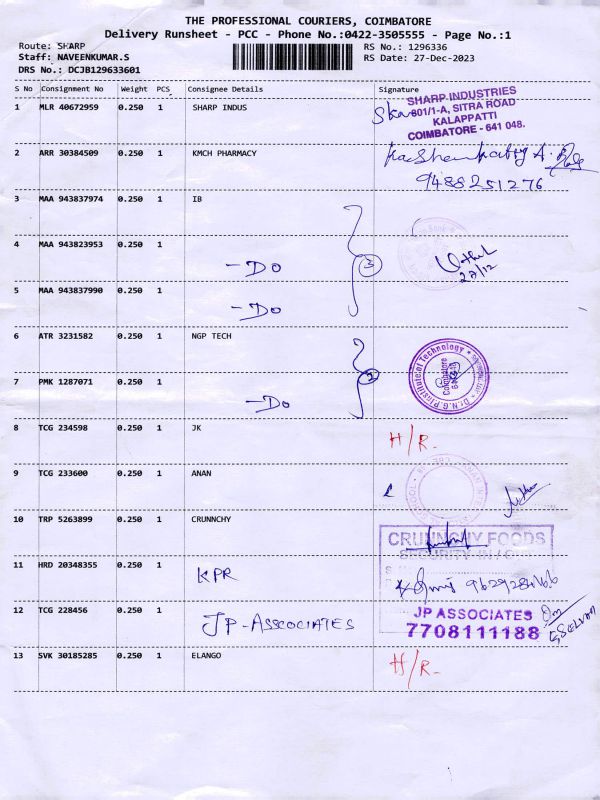 THE PROFESSIONAL COURIERS, COIMBATORE
Delivery Runsheet - PCC - Phone No.:0422-3505555 - Page No.:1
Route: SHARP
RS No.: 1296336
Staff: NAVEENKUMAR.S
RS Date: 27-Dec-2023
DRS No.: DCJB129633601
S No Consignment No Weight PCS Consignee Details Signature
1 MLR 40672959 0.250 1 SHARP INDUS
SHARP INDUSTRIES
801/1-A, SITRA ROAD
KALAPPATTI
COIMBATORE - 641 048.
2 ARR 30384509 0.250 1 KMCH PHARMACY
9488251276
3 MAA 943837974 0.250 1 IB
4 MAA 943823953 0.250 1
- DO 3
27/12
5 MAA 943837990 0.250 1
- DO
6 ATR 3231582 0.250 1 NGP TECH
Dr.N.G.P. Institute of Technology
Coimbatore
7 PMK 1287071 0.250 1
- DO 2
8 TCG 234598 0.250 1 JK H/R.
9 TCG 233600 0.250 1 ANAN
10 TRP 5263899 0.250 1 CRUNNCHY
CRUNNCHY FOODS
SECURITY
11 HRD 20348355 0.250 1 KPR 9629284166
12 TCG 228456 0.250 1 JP-ASSCOCIATES
JP ASSOCIATES
7708111188
G.SELVAN
13 SVK 30185285 0.250 1 ELANGO H/R.